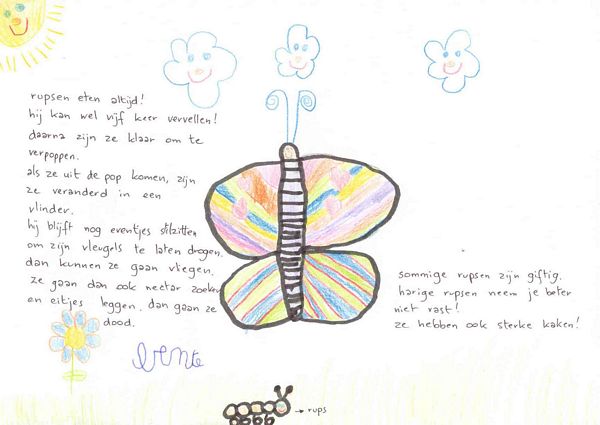 rupsen eten altijd!
hij kan wel vijf keer vervellen!
daarna zijn ze klaar om te
verpoppen.
als ze uit de pop komen, zijn
ze veranderd in een
vlinder.
hij blijft nog eventjes stilzitten
om zijn vleugels te laten drogen.
dan kunnen ze gaan vliegen.
ze gaan dan ook nectar zoeken
en eitjes leggen. dan gaan ze
dood.
sommige rupsen zijn giftig.
harige rupsen neem je beter
niet vast!
ze hebben ook sterke kaken!
→ rups